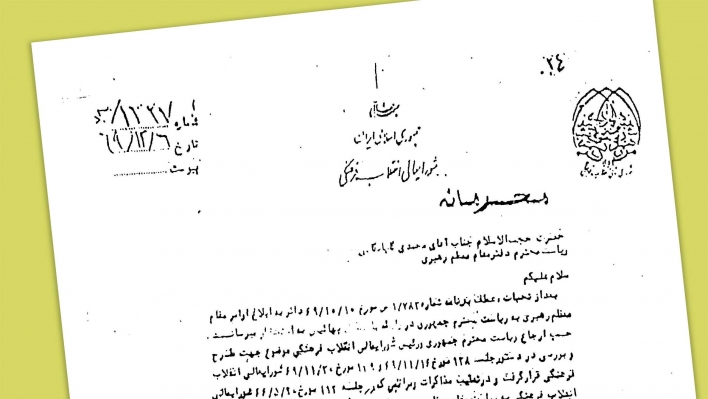 ۰۲۴
بسمه تعالی
جمهوری اسلامی ایران
شورایعالی انقلاب فرهنگی
شماره ۱۳۲۷/
تاریخ ۶۹/۱۲/۶
پیوست
محرمانه
حضرت حجت‌الاسلام جناب آقای محمدی گلپایگانی
ریاست محترم دفتر مقام معظم رهبری
سلام علیکم
بعد از تحیات، عطف بنامه شماره ۱/۷۸۲ س مورخ ۶۹/۱۰/۱۰ دائر به ابلاغ اوامر مقام
معظم رهبری به ریاست محترم جمهوری در به استحضار میرساند
حسب ارجاع ریاست محترم جمهوری ورئیس شورایعالی انقلاب فرهنگی موضوع جهت طرح
و بررسی در دستور جلسه ۱۲۸ مورخ ۶۹/۱۱/۱۶ و ۱۱۹ مورخ ۶۹/۱۱/۲۰ شورایعالی انقلاب
فرهنگی قرار گرفت و در تعقیب مذاکرات ومراتبی که در جلسه ۱۱۲ مورخ ۶۶/۵/۲۰ شورایعالی
انقلاب فرهنگی